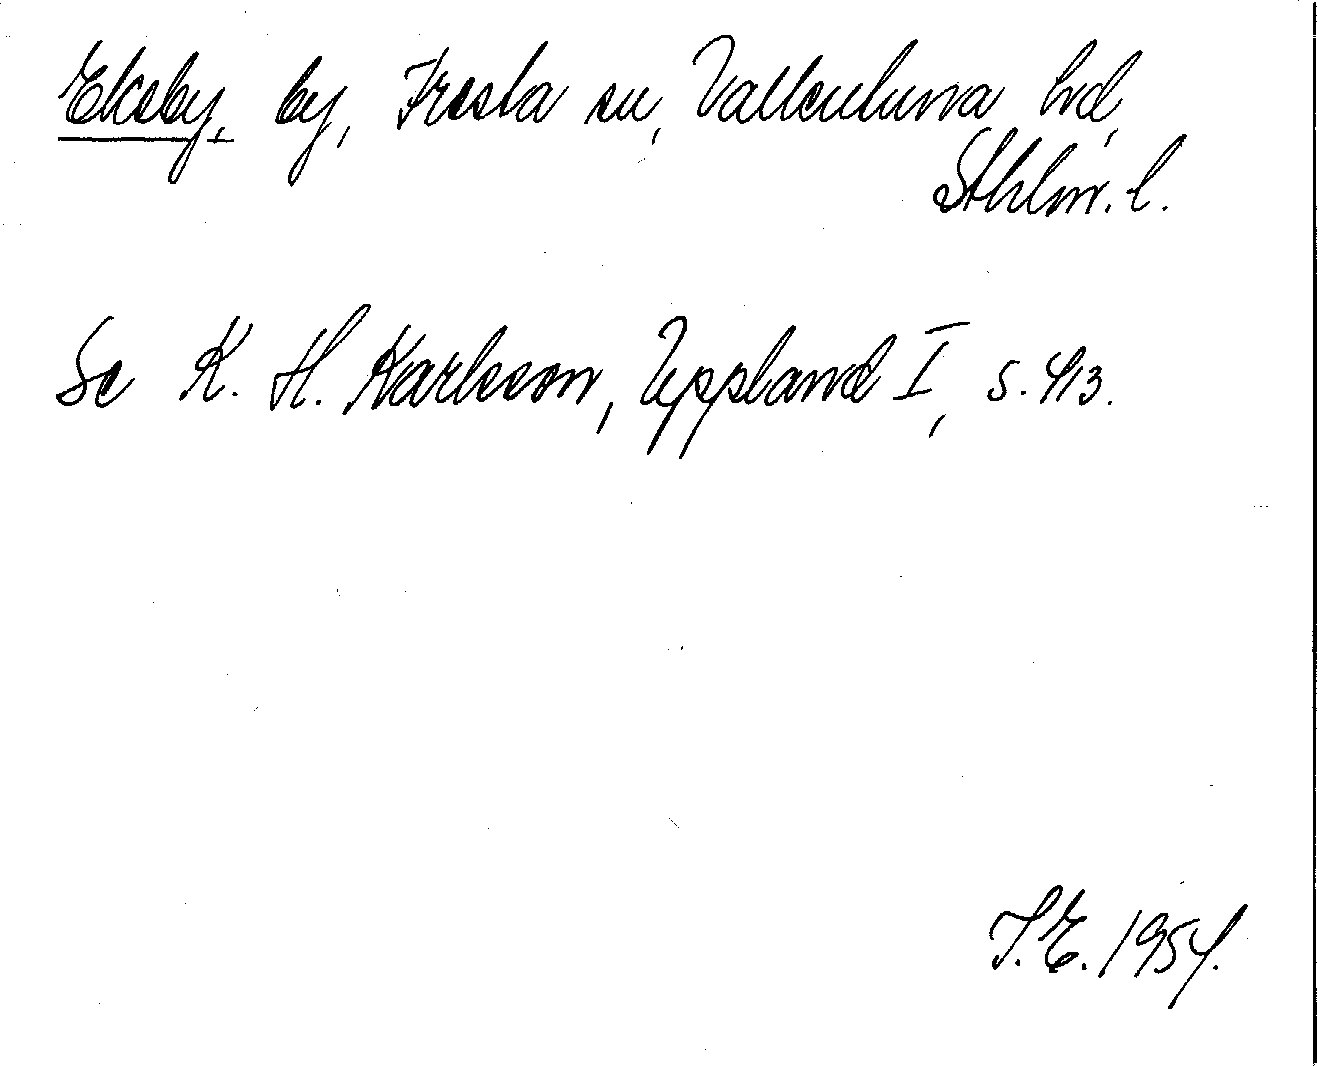 Eksby, by, Fresta sn, Vallentuna hd,
Sthlm. l.
Se K. H. Karlsson, Uppland I, s. 413.
J.E. 1954.